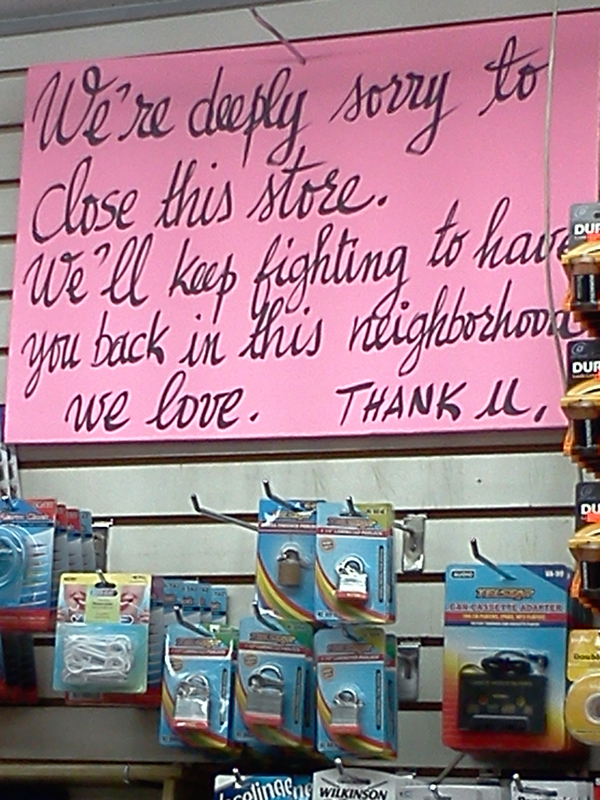 We're deeply sorry to
close this store.
We'll keep fighting to have
you back in this neighborhood
we love. THANK U.
DUR
DUR
DU
AUDIO
TELSTAR
CAR CASSETTE ADAPTER
Double
WILKINSON